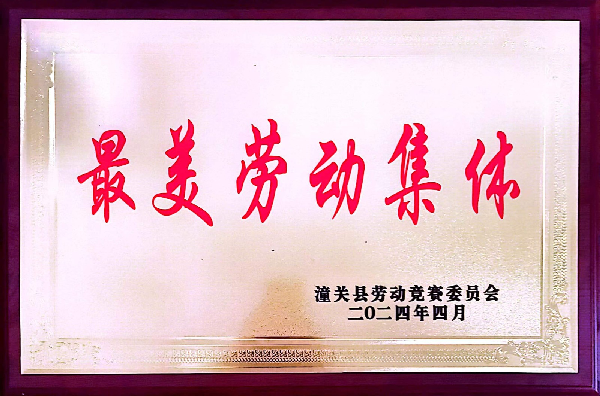 最美劳动集体
潼关县劳动竞赛委员会
二〇二四年四月